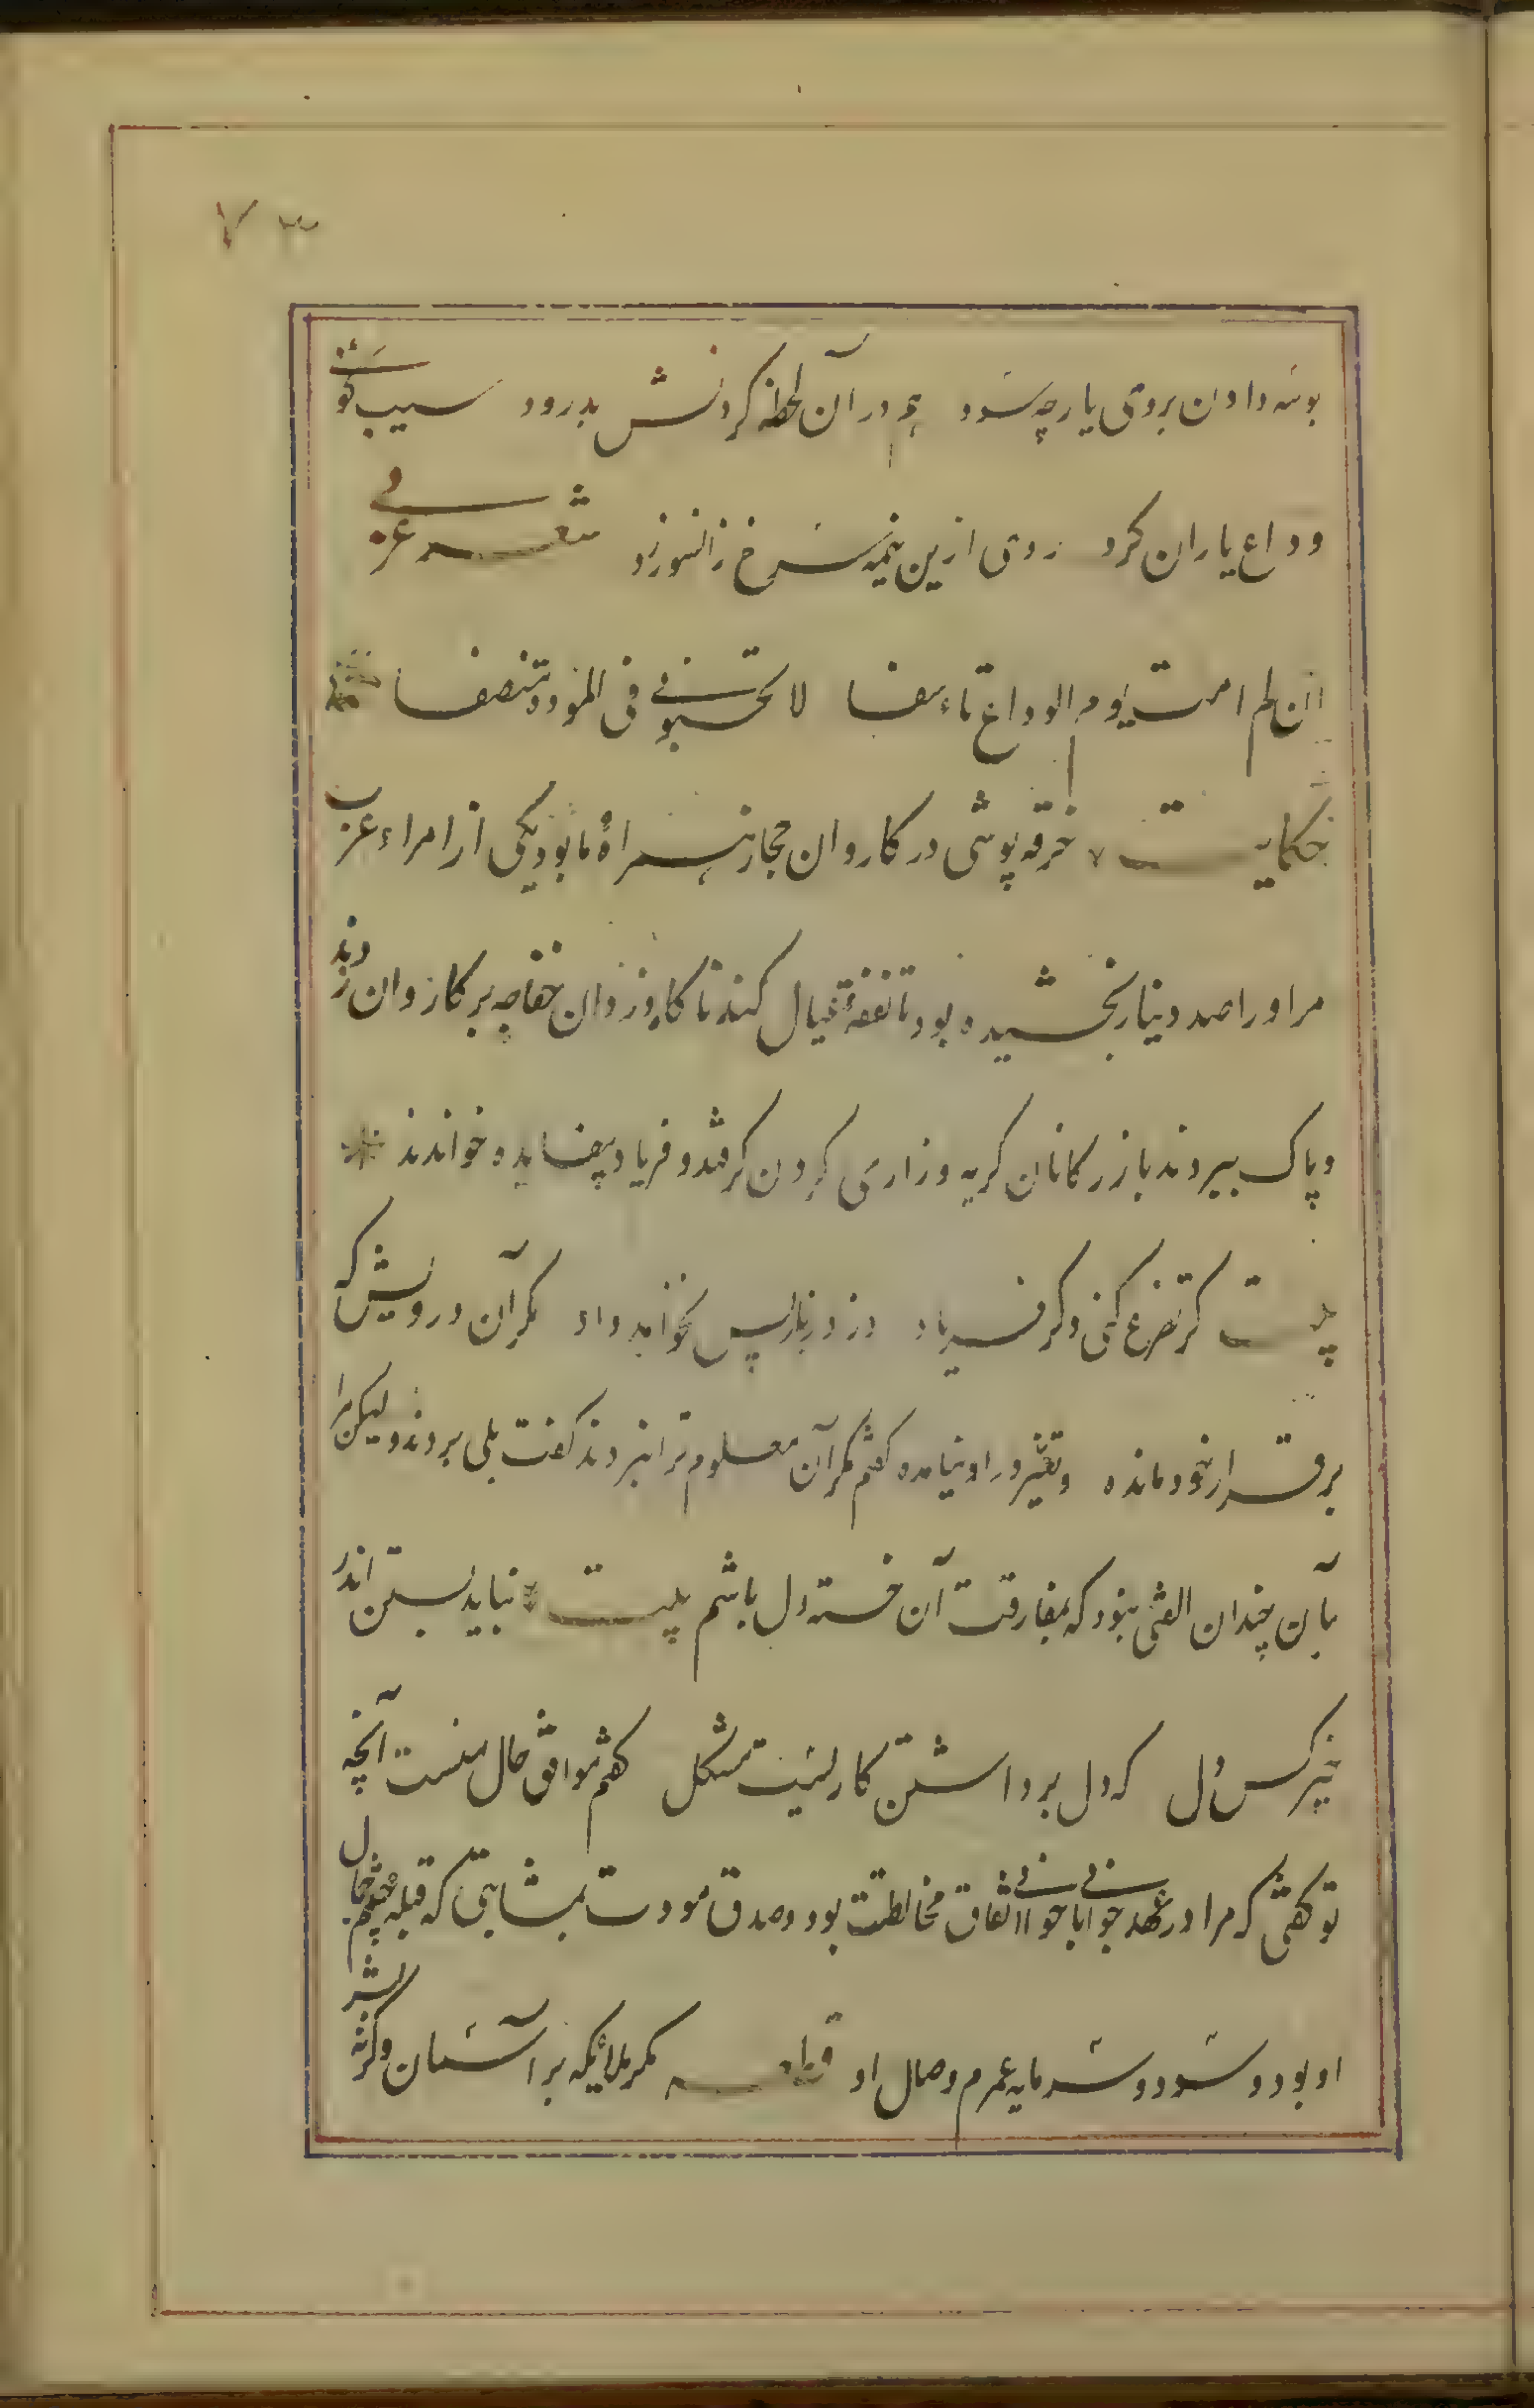 ۷۳
بوسه دادن بروی یار چه سود هم در آن لحظه کردنش بدرود سیب کوئی
وداع یاران کرد روی ازین نیمه سرخ زانسو زرد شعر عربی
ان لم امت یوم الوداع تاءسفا لا تحسبونی فی المودة منصفا
حکایت خرقه پوشی در کاروان حجاز همراه ما بود یکی از امراء عرب
مر او را صد دینار بخشیده بود تا نفقهٔ عیال کند ناکاه دزدان خفاجه بر کاروان زدند
و پاک ببردند بازرکانان کریه و زاری کردن کرفتند و فریاد بیفایده خواندند
بیت کر تضرع کنی و کر فریاد دزد زر باز پس نخواهد داد مکر آن درویش که
بر قرار خود مانده و تغیر در او نیامده کفتم مکر آن معلوم ترا نبردند کفت بلی بردند ولیکن مرا
بآن چندان الفتی نبود که بمفارقت آن خسته دل باشم بیت نباید بستن اندر
چیز کس دل که دل برداشتن کاریست مشکل کفتم موافق حال منست آنچه
تو کفتی که مرا در عهد جوانی با جوانی اتفاق مخالطت بود و صدق مودت بمثابتی که قبله چشمم جمال
او بود و سود و سرمایه عمرم وصال او قطعه مکر ملائیکه بر آسمان و کرنه بشر